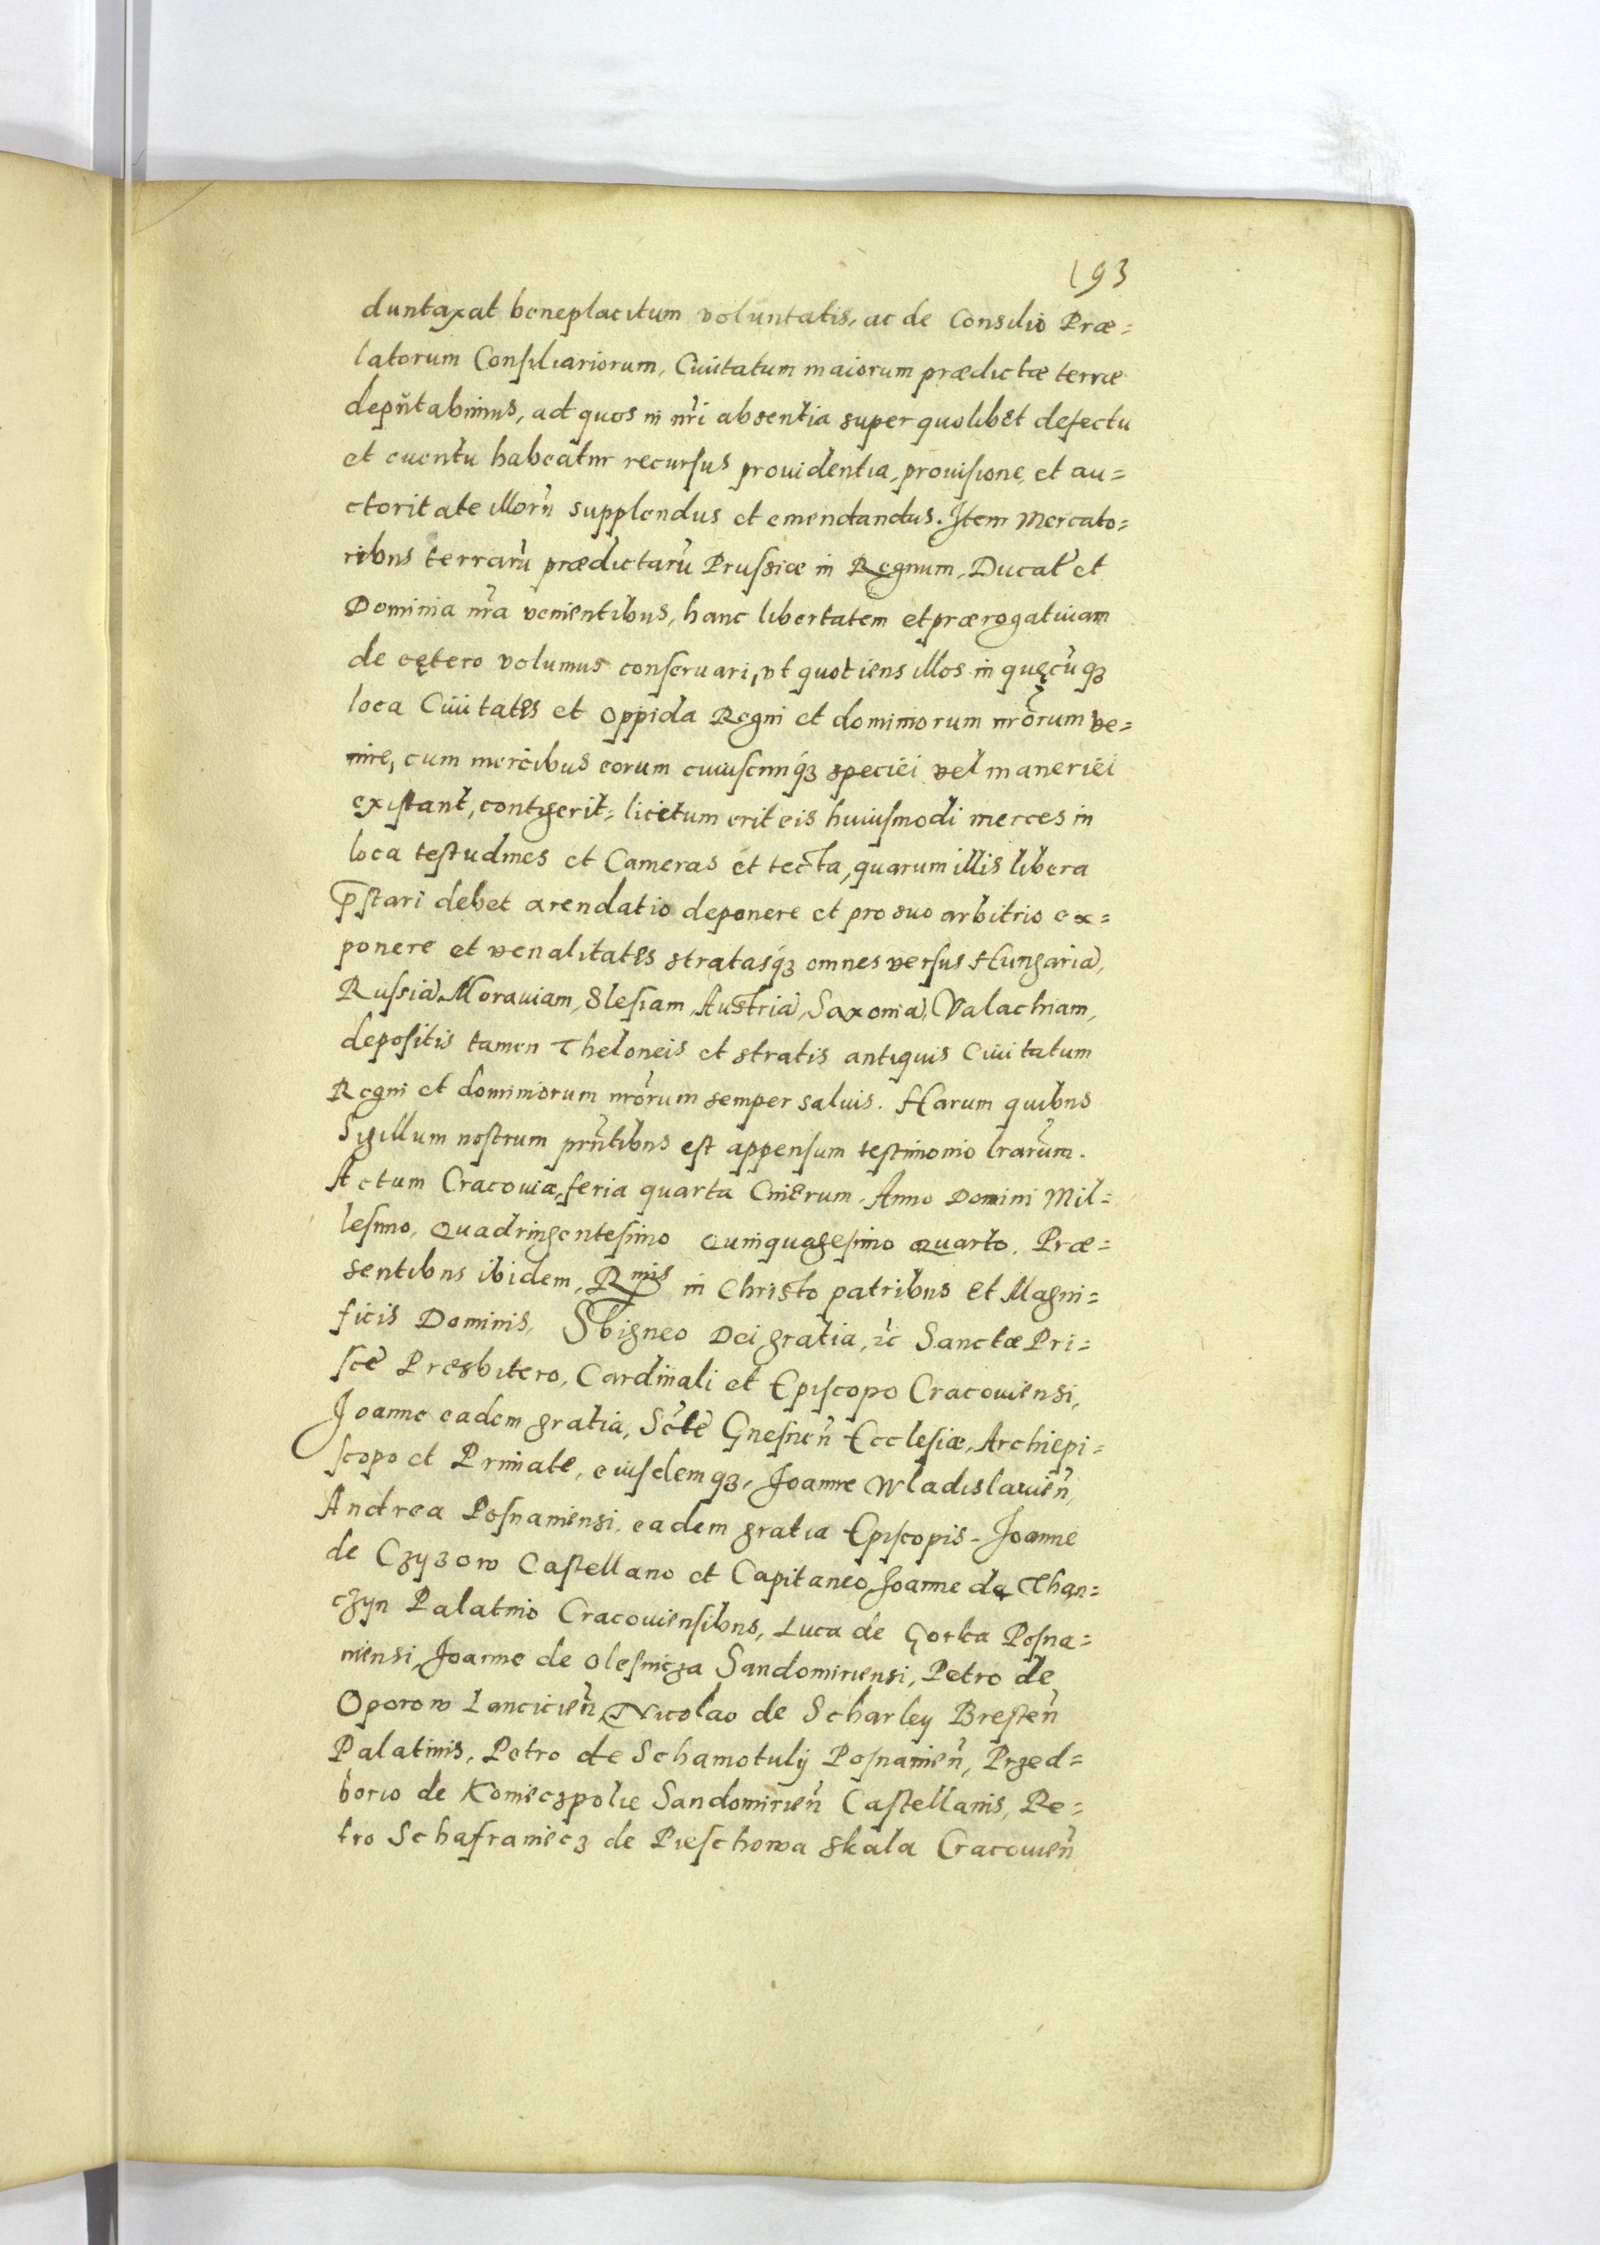 193
duntaxat beneplacitum voluntatis, ac de Consilio Præ=
latorum Consiliariorum, Ciuitatum maiorum prædictæ terræ
depũtabimus, ad quos in nr̃i absentia super quolibet defectu
et euentu habeatur recursus prouidentia, prouisione, et au=
ctoritate illorũ supplendus et emendandus. Item Mercato=
ribus terrarũ prædictarũ Prussiæ in Regnum, Ducat9 et
Dominia nr̃a venientibus, hanc libertatem et prærogatiuam
de cętero volumus conseruari, vt quotiens illos in quęcũq3
loca Ciuitates et Oppida Regni et dominiorum nr̃orum ve=
nire, cum mercibus eorum cuiuscunq3 speciei vel maneriei
existant, contigerit= licitum erit eis huiusmodi merces in
loca testudines et Cameras et tecta, quarum illis libera
p̄stari debet arendatio deponere et pro suo arbitrio ex=
ponere et venalitates stratasq3 omnes versus Hungariã,
Russiã, Morauiam, Slesiam, Austriã, Saxoniã, Valachiam,
depositis tamen Theloneis et stratis antiquis Ciuitatum
Regni et dominiorum nr̃orum semper saluis. Harum quibus
Sigillum nostrum pr̃ntibus est appensum testimonio lr̃arum.
Actum Cracouiæ, feria quarta Cinerum. Anno Domini Mil=
lesimo, Quadringentesimo Quinquagesimo Quarto. Præ=
sentibus ibidem, Rmis in Christo patribus et Magni=
ficis Dominis, Sbigneo Dei gratia, &c Sanctæ Pri=
sce Presbitero, Cardinali et Episcopo Cracouiensi,
Joanne eadem gratia, Sc̃te Gnesneñ Ecclesiæ, Archiepi=
scopo et Primate, eiusdemq3, Joanne Wladislauieñ,
Andrea Posnaniensi, eadem gratia Episcopis- Joanne
de Czyzow Castellano et Capitaneo, Joanne de Than=
czyn Palatino Cracouiensibus, Luca de Gorka Posna=
niensi, Joanne de Olesnicza Sandomiriensi, Petro de
Oporow Lancicieñ, Nicolao de Scharley Bresteñ
Palatinis, Petro de Schamotulij Posnanieñ, Przed=
borio de Konieczpolie Sandomirieñ Castellanis, Pe=
tro Schafraniecz de Pieschowa skala Cracouieñ